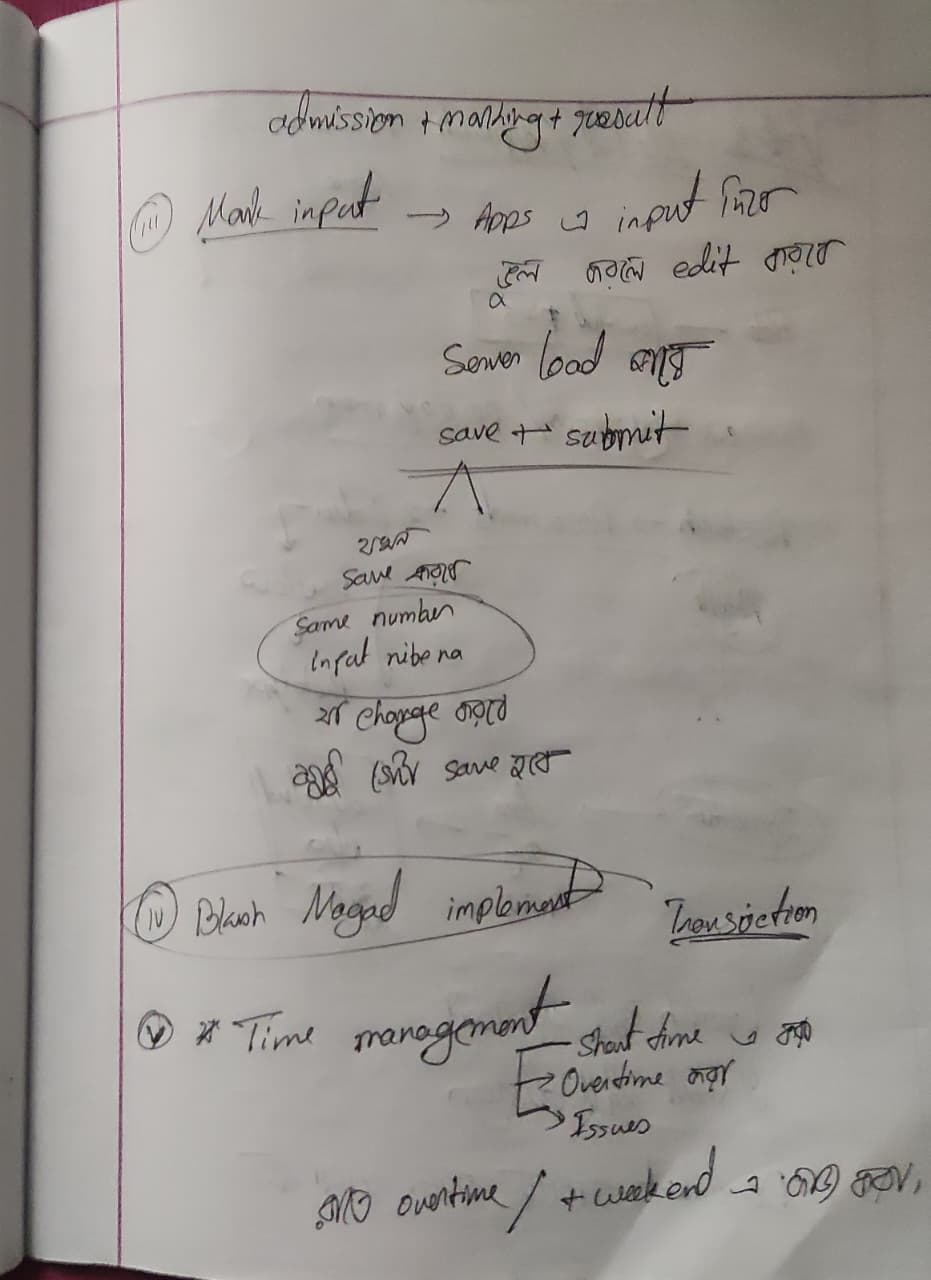 admission + marking + result
(iii) Mark input → Apps এ input দিবে
ভুল করলে edit করবে
Server load কমবে
save + submit
যখন
save করবে
Same number
input nibe na
যা change করবে
শুধু সেটা save হবে
(iv) Bkash Nagad implement Transiction
(v) * Time management
Short time এ করা
→ Overtime করা
→ Issues
রাত overtime / + weekend এ কাজ করা,